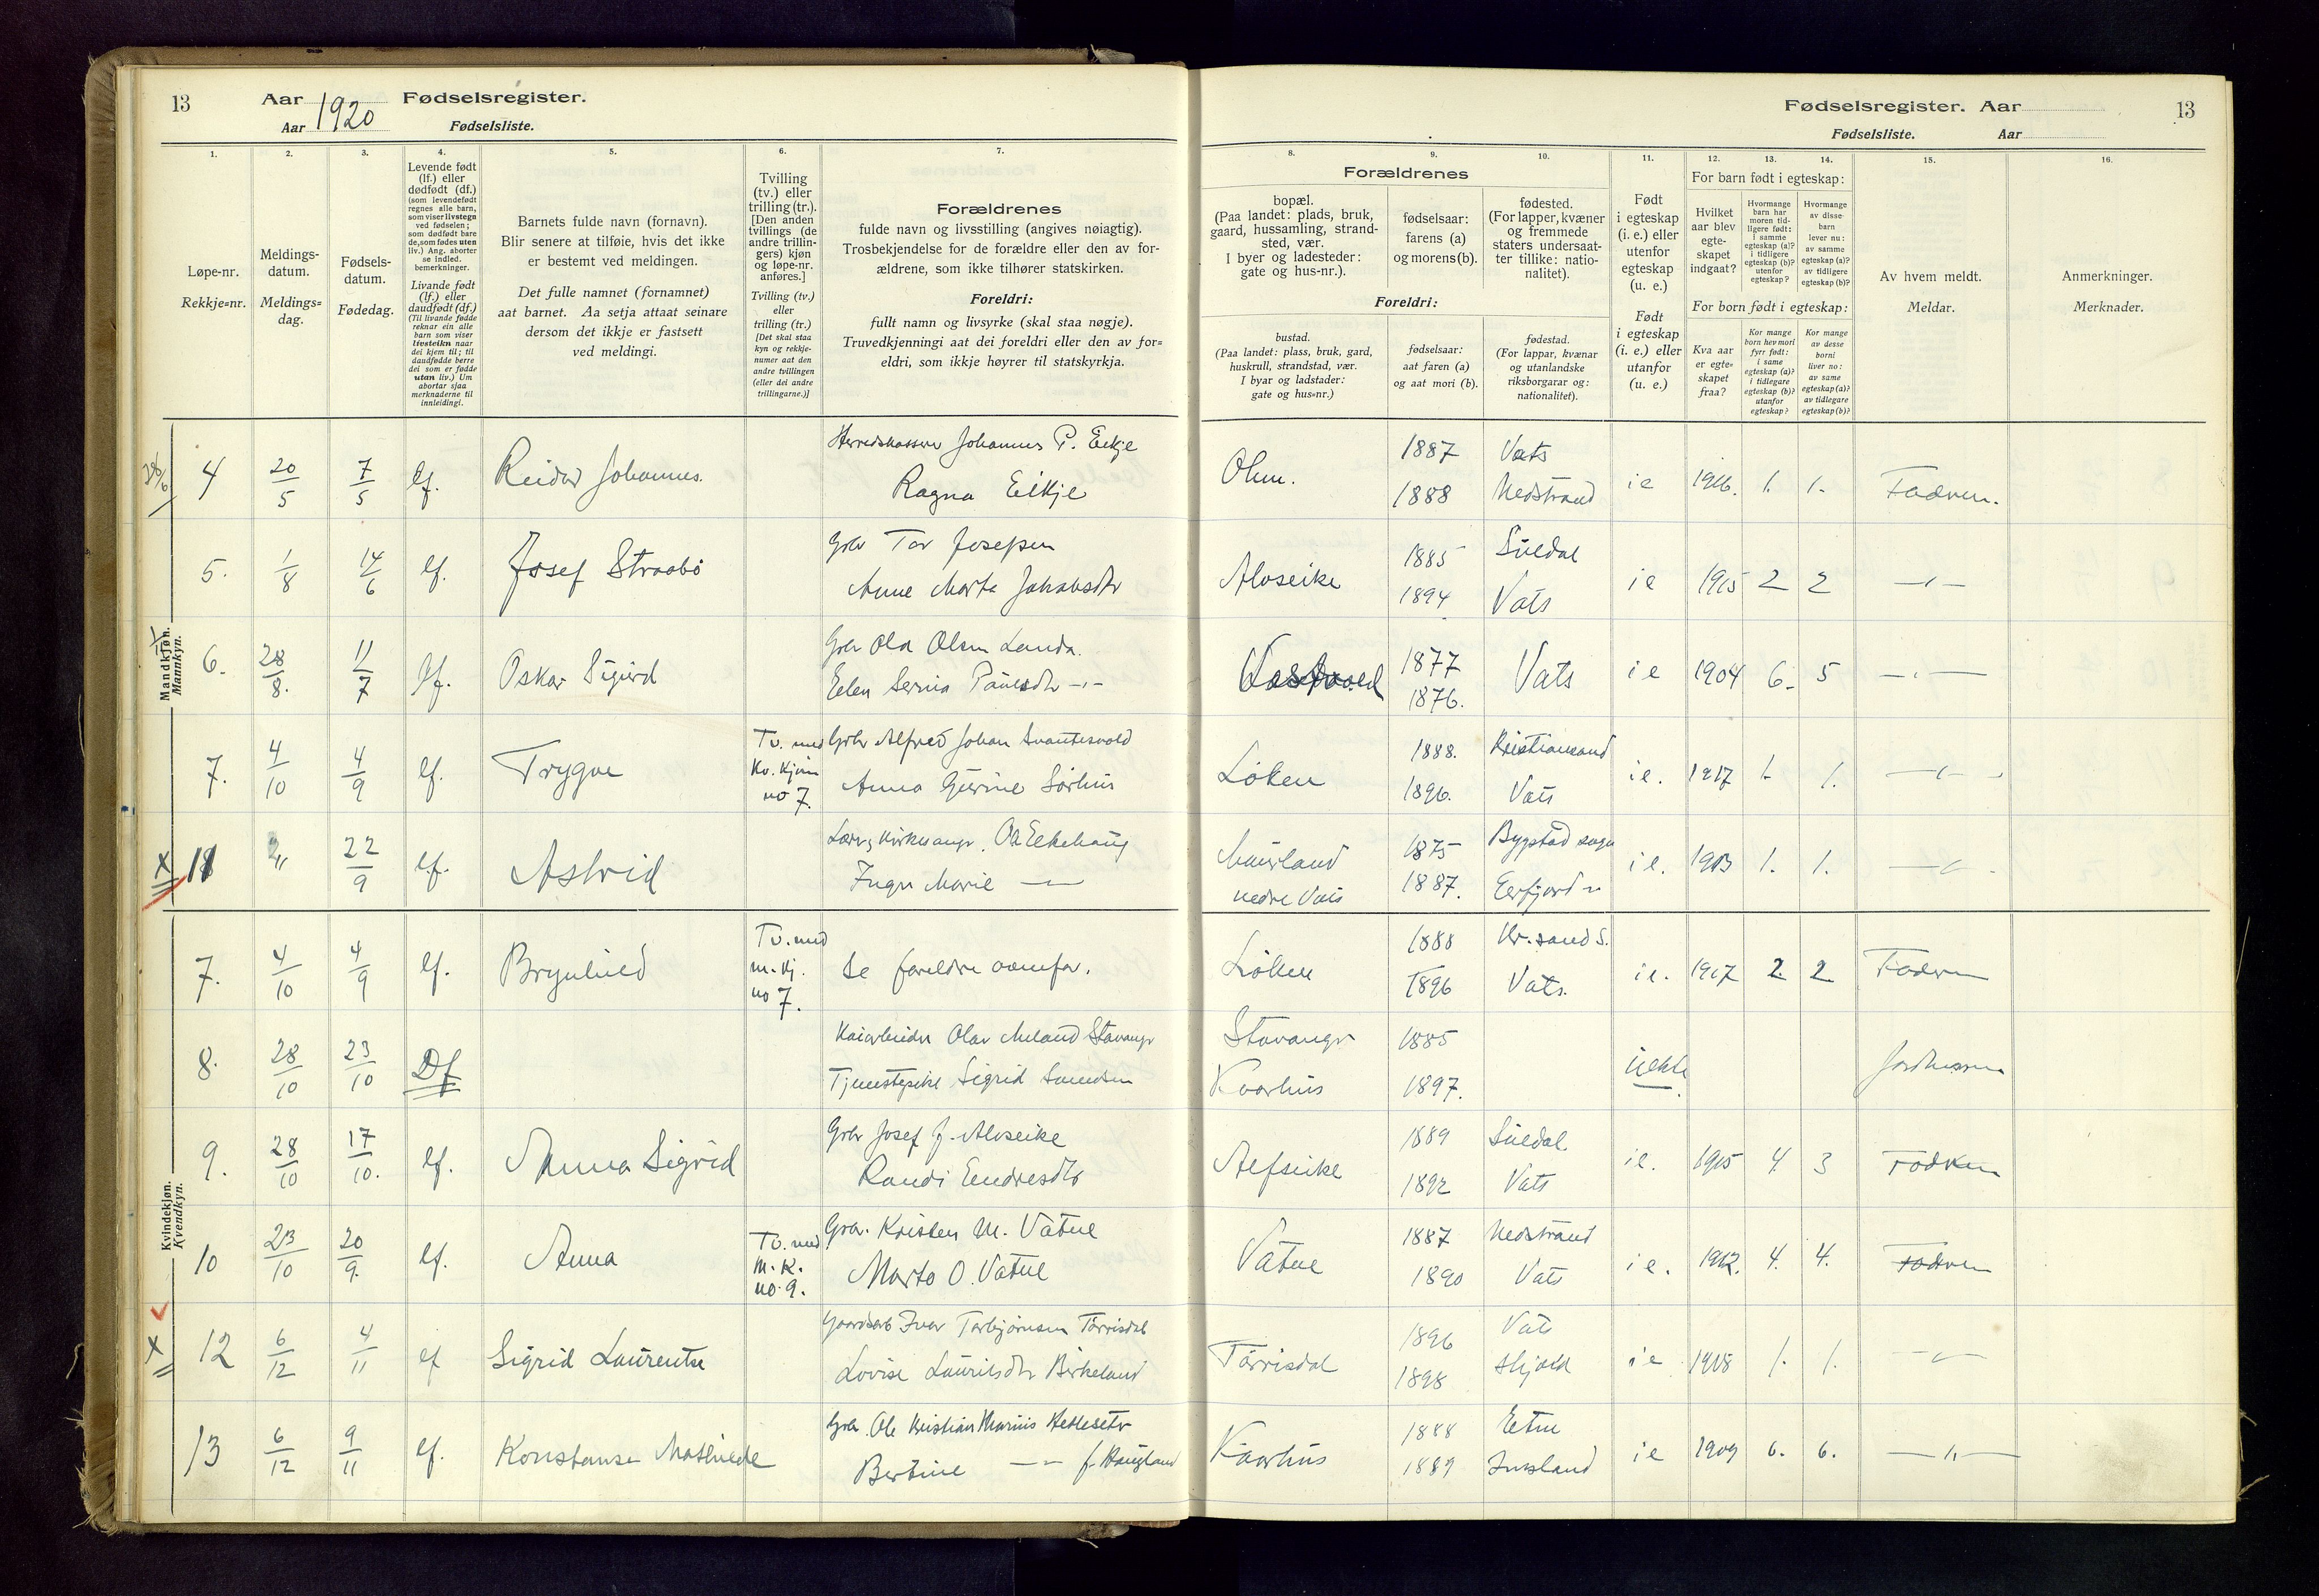 13 Aar 1920 Fødselsregister.
Aar Fødselsliste.
Fødselsregister. Aar 13
Fødselsliste. Aar
1. 2. 3. 4. 5. 6. 7.
8. 9. 10. 11. 12. 13. 14. 15. 16.
Løpe-nr.
Rekkje=nr.
Meldings-
datum.
Meldings=
dag.
Fødsels-
datum.
Fødedag.
Levende født
(lf.) eller
dødfødt (df.)
(som levendefødt
regnes alle barn,
som viser livstegn
ved fødselen;
som dødfødt bare
de, som fødes uten
liv.) Ang. aborter
se indled.
bemerkninger.
Livande født
(lf.) eller
daudfødt (df.)
(Til livande fødde
reknar ein alle
barn som viser
livsteikn naar
dei kjem til; til
daudfødde berre
dei som er fødde
utan liv.) Um
abortar sjaa
merknaderne til
innleidingi.
Barnets fulde navn (fornavn).
Blir senere at tilføie, hvis det ikke
er bestemt ved meldingen.
Det fulle namnet (fornamnet)
aat barnet. Aa setja attaat seinare
dersom det ikkje er fastsett
ved meldingi.
Tvilling
(tv.) eller
trilling (tr.).
[Den anden
tvillings (de
andre trillin-
gers) kjøn
og løpe-nr.
anføres.]
Tvilling (tv.)
eller
trilling (tr.)
[Det skal staa
kyn og rekkje-
numer aat den
andre tvillingen
(eller dei andre
trillingarne.)]
Forældrenes
fulde navn og livsstilling (angives nøiagtig).
Trosbekjendelse for de forældre eller den av for-
ældrene, som ikke tilhører statskirken.
Foreldri:
fullt namn og livsyrke (skal staa nøgje).
Truvedkjenningi aat dei foreldri eller den av for=
eldri, som ikkje høyrer til statskyrkja.
Forældrenes
bopæl.
(Paa landet: plads, bruk,
gaard, hussamling, strand-
sted, vær.
I byer og ladesteder:
gate og hus-nr.).
fødselsaar:
farens (a)
og morens (b).
fødested.
(For lapper, kvæner
og fremmede
staters undersaat-
ter tillike: natio-
nalitet).
Foreldri:
bustad.
(Paa landet: plass, bruk, gard,
huskrull, strandstad, vær.
I byar og ladstader:
gate og hus=nr.)
fødselsaar:
aat faren (a)
og aat mori (b).
fødestad.
(For lappar, kvænar
og utanlandske
riksborgarar og:
nationalitet).
Født
i egteskap
(i. e.) eller
utenfor
egteskap
(u. e.)
Født
i egteskap
(i. e.) eller
utanfor
(u. e.)
For barn født i egteskap:
Hvilket
aar blev
egte-
skapet
indgaat?
Hvormange
barn har
moren tid-
ligere født:
i samme
egteskap (a)?
i tidligere
egteskap (b)?
utenfor
egteskap?
Hvormange
av disse
barn
lever nu:
av samme
egteskap (a)?
av tidligere
egteskap (b)?
For born født i egteskap:
Kva aar
er egte-
skapet
fraa?
Kor mange
born hev mori
fyrr født:
i same
egteskap (a)?
i tidlegare
egteskap (b)?
utanfor
egteskap?
Kor mange
av desse
borni
liver no:
av same
egteskap (a)?
av tidlegare
egteskap (b)?
Av hvem meldt.
Meldar.
Anmerkninger.
Merknader.
Mandkjøn.
Mannkyn.
4 20/5 7/5 lf. Reidar Johannes. Herredskasserer Johannes P. Eikje Ølen. 1887 Vats ie 1916. 1. 1. Faderen.
Ragna Eikje 1888 Nedstrand
5. 1/8 14/6 lf. Josef Straabø Gbr Tor Josefsen Aloseike 1885 Suldal ie 1915 2 2 —„—
Anne Marta Jakobsdtr 1894 Vats
6. 28/8. 11/7 lf. Oskar Sigurd Gbr Ola Olsen Landa. 1877 Vats ie 1904 6. 5 —„—
Elen Serina —„— 1876.
7. 4/10 4/9 lf. Trygve Tv. med Kv. kjøn no 7. Gbr Alfred Johan Svantesvold Løken 1888. Kristiansand ie. 1917 1. 1. —„—
Anna Gurine Sørhus 1896. Vats
X 11 „ 22/9 lf. Astrid Lærer, kirkesanger, O. Eikehaug 1875 Bygstad sogn ie. 1913 1. 1. —„—
Inger Marie —„— nedre Vats 1887. Eerfjord
Kvindekjøn.
Kvendkyn.
7. 4/10 4/9 lf. Brynhild Tv. med m. kj. no 7. Se foreldre ovenfor. Løken 1888 Kr.sand S. ie. 1917 2. 2 Faderen
1896 Vats.
8. 28/10 23/10 Df Kaiarbeider Olav Meland Stavanger Stavanger 1885 uekte. Jordmoren
Tjenestepike Sigrid Samdsen Kvarhus 1897.
9. 28/10 17/10. lf. Anna Sigrid Gbr Josef J. Aloseike Aefseike 1889 Suldal ie. 1915 4 3 Faderen
Randi Endresdtr 1892 Vats
10 23/10 20/9. lf. Anna Tv. med M. K. no. 9. Gbr. Kristen M. Vatne Vatne 1887 Nedstrand ie. 1912. 4. 4. Faderen
Marta O. Vatne 1890 Vats
X 12 6/12 4/11 lf Sigrid Laurentse Gaardarb Iver Torbjørnsen Tørrisdal Tørrisdal 1896 Vats ie 1918 1. 1. —„—
Lovise Lauritsdtr Birkeland 1898 Skjold
13 6/12 9/11 lf. Konstanse Mathilde Gbr. Ole Kristian Marius Hetlesetr Kaarhus 1888 Etne ie 1909 6. 6. —„—
Bertine —„— f. Haugland 1889 Imsland